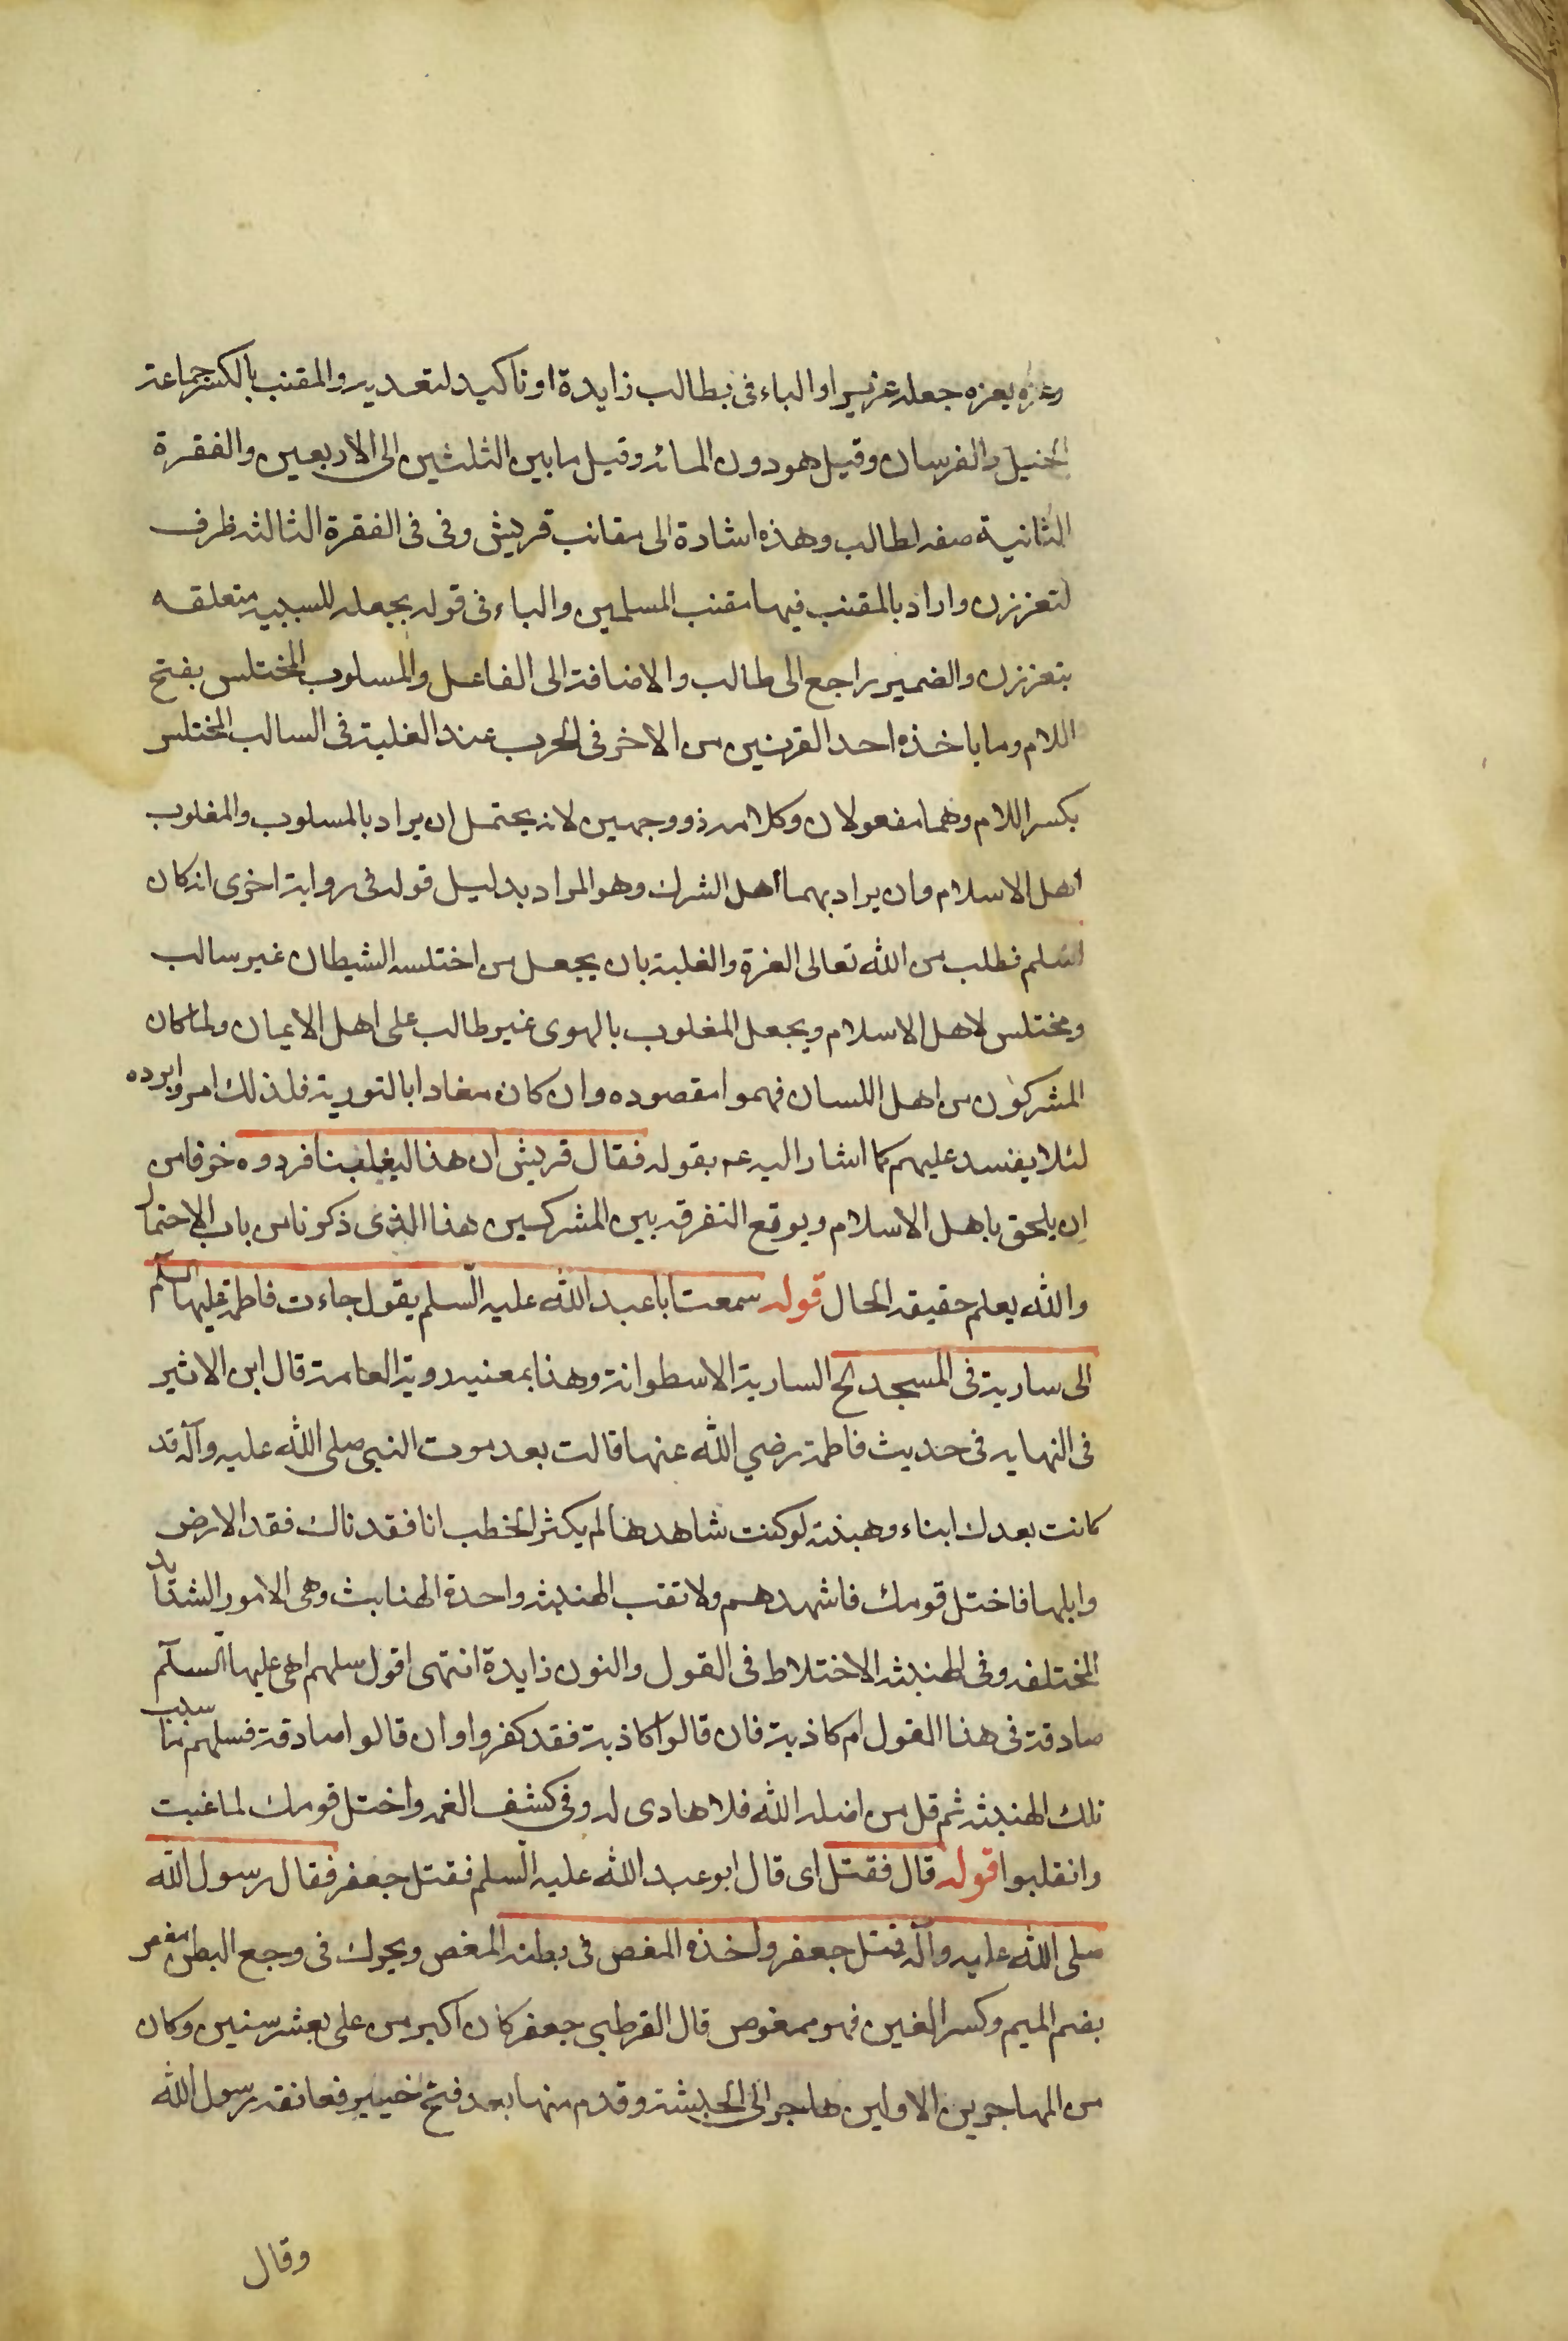 وعزه يعزه جعله عزيزا والباء فى بطالب زايدة او تاكيد لتعديه والمقنب بالكسر جماعة
الخيل والفرسان وقيل هو دون المائه وقيل ما بين الثلثين الى الاربعين والفقرة
الثانية صفه لطالب وهذه اشارة الى مقانب قريش وفى فى الفقرة الثالثه ظرف
لتعززن واراد بالمقنب فيها مقنب المسلمين والباء فى قوله بجعله للسببيه متعلقه
بتعززن والضمير راجع الى طالب والاضافة الى الفاعل والمسلوب المختلس بفتح
اللام وما ياخذه احد القرنين من الاخر فى الحرب عند الغلبة فى السالب المختلس
بكسر اللام وهما مفعولان وكلامه ذو وجهين لانه يحتمل ان يراد بالمسلوب والمغلوب
اهل الاسلام وان يراد بهما اهل الشرك وهو المراد بدليل قوله فى رواية اخرى انه كان
اسلم فطلب من الله تعالى العزة والغلبة بان يجعل من اختلسه الشيطان غير سالب
ومختلس لاهل الاسلام ويجعل المغلوب بالهوى غير طالب على اهل الايمان ولما كان
المشركون من اهل اللسان فهموا مقصوده وان كان مغادا بالتورية فلذلك امروا برده
لئلا يفسد عليهم كما اشار اليه عم بقوله فقال قريش ان هذا ليغلبنا فردوه خوفا من
ان يلحق باهل الاسلام ويوقع التفرقه بين المشركين هذا الذى ذكرنا من باب الاحتمال
والله يعلم حقيقه الحال قوله سمعت ابا عبد الله عليه السلم يقول جاءت فاطمة عليها السلم
الى سارية فى المسجد الخ السارية الاسطوانة وهذا بمعنيه روية العامة قال ابن الاثير
فى النهايه فى حديث فاطمة رضي الله عنها قالت بعد موت النبى صلى الله عليه وآله قد
كانت بعدك ابناء وهبنثه لو كنت شاهدها لم يكثر الخطب انا فقدناك فقد الارض
وابلها فاختل قومك فاشهدهم ولا تغب الهنبثه واحدة الهنابث وهى الامور الشدايد
المختلفه وفى الهنبثه الاختلاط فى القول والنون زايدة انتهى اقول سلهم اهى عليها السلم
صادقة فى هذا القول ام كاذبة فان قالوا كاذبة فقد كفروا وان قالوا صادقة فسلهم ما سبب
تلك الهنبثه ثم قل من اضله الله فلا هادى له وفى كشف الغمه واختل قومك لما غبت
وانقلبوا قوله قال فقتل اى قال ابو عبد الله عليه السلم فقتل جعفر فقال رسول الله
صلى الله عليه وآله قتل جعفر واخذه المغص فى بطنه المغص ويحرك فى وجع البطن مغص
بضم الميم وكسر الغين فهو ممغوص قال القرطبى جعفر كان اكبر من على بعشر سنين وكان
من المهاجرين الاولين هاجر الى الحبشة وقدم منها بعد فتح خيبر فعانقه رسول الله
وقال